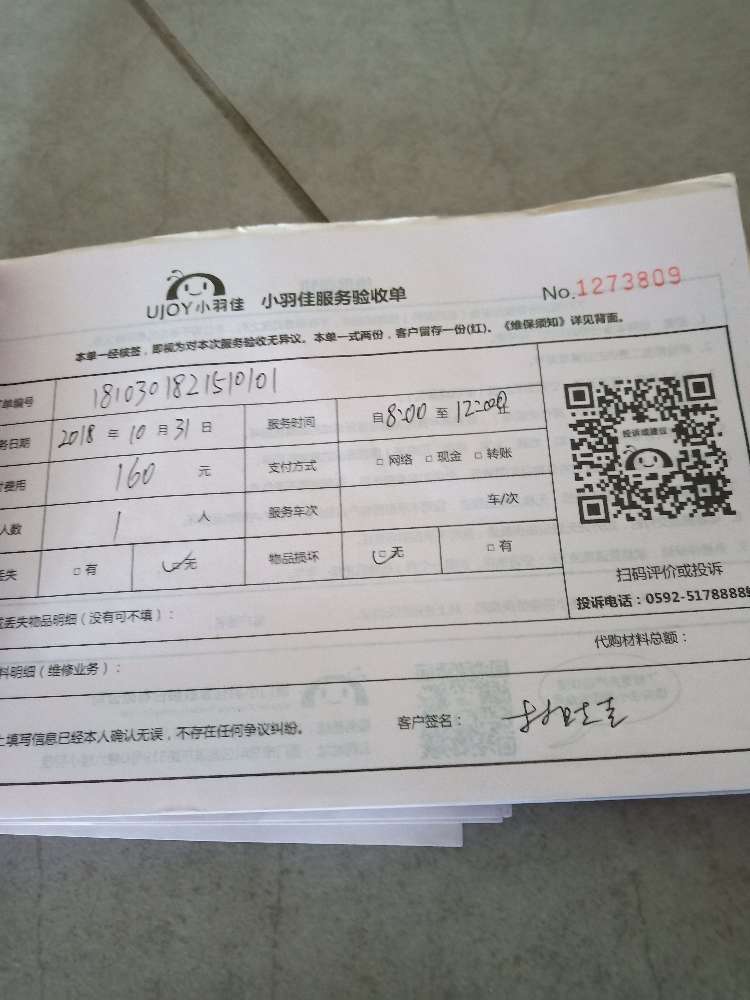 UJOY小羽佳 小羽佳服务验收单 No.1273809
本单一经核签，即视为对本次服务验收无异议。本单一式两份，客户留存一份(红)。《维保须知》详见背面。
单编号 181030182151010​1
务日期 2018 年 10 月 31 日 服务时间 自8:00 至 12:00止
费用 160 元 支付方式 □ 网络 □ 现金 □ 转账
人数 1 人 服务车次 车/次
丢失 □ 有 □ 无 物品损坏 □ 无 □ 有
投诉或建议
扫码评价或投诉
投诉电话：0592-5178888
丢失物品明细（没有可不填）：
料明细（维修业务）： 代购材料总额：
上填写信息已经本人确认无误，不存在任何争议纠纷。 客户签名：